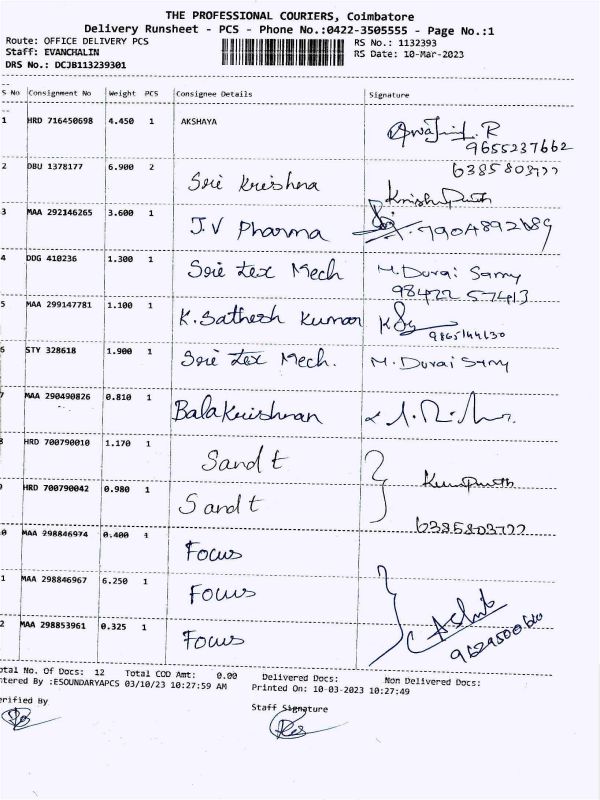 THE PROFESSIONAL COURIERS, Coimbatore
Delivery Runsheet - PCS - Phone No.:0422-3505555 - Page No.:1
Route: OFFICE DELIVERY PCS
RS No.: 1132393
Staff: EVANCHALIN
RS Date: 10-Mar-2023
DRS No.: DCJB113239301
S No Consignment No Weight PCS Consignee Details Signature
1 HRD 716450698 4.450 1 AKSHAYA
9655237662
2 DBU 1378177 6.900 2 Sri Krishna 6385803722
3 MAA 292146265 3.600 1 J.V Pharma 7904892689
4 DDG 410236 1.300 1 Sri Tex Mech M. Durai Samy
98422 57413
5 MAA 299147781 1.100 1 K. Sathesh Kumar
9865144130
6 STY 328618 1.900 1 Sri Tex Mech. M. Durai Samy
7 MAA 290490826 0.810 1 Balakrishnan
8 HRD 700790010 1.170 1 Sand t
9 HRD 700790042 0.980 1 Sand t
6385803722
0 MAA 298846974 0.400 1 Focus
1 MAA 298846967 6.250 1 Focus
2 MAA 298853961 0.325 1 Focus
otal No. Of Docs: 12 Total COD Amt: 0.00 Delivered Docs: Non Delivered Docs:
ntered By :ESOUNDARYAPCS 03/10/23 10:27:59 AM Printed On: 10-03-2023 10:27:49
erified By
Staff Signature